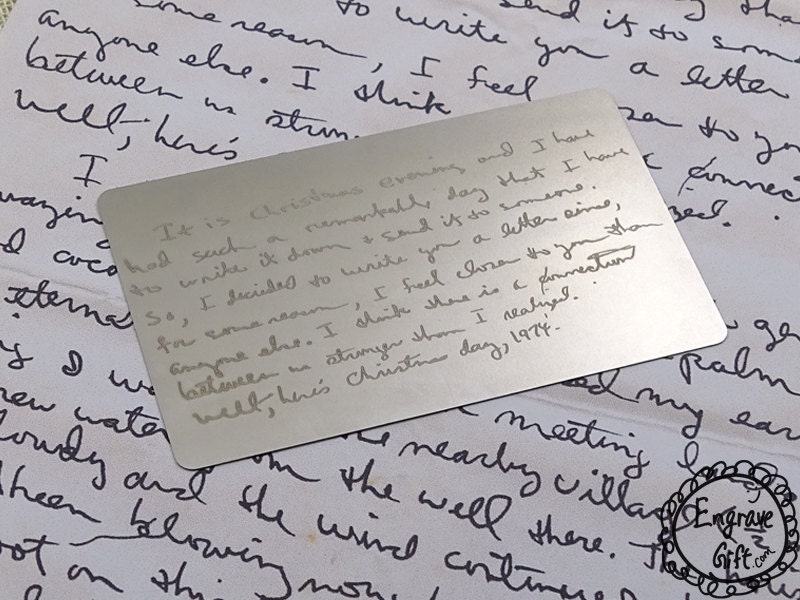 some reason, to write you send it to som
anyone else. I feel a letter
between us think
well, here's
I
It is Christmas evening and I have
had such a remarkable day that I have
to write it down & send it to someone.
So, I decided to write you a letter since,
for some reason, I feel closer to you than
anyone else. I think there is a connection
between us stronger than I realized.
well, here's Christmas day, 1974.
to you
connect
eterna
I
palm
my ear
new water meeting
loudy and the well there.
the nearby villa
the wind continued
been blowing
on
Engrave
Gift.com